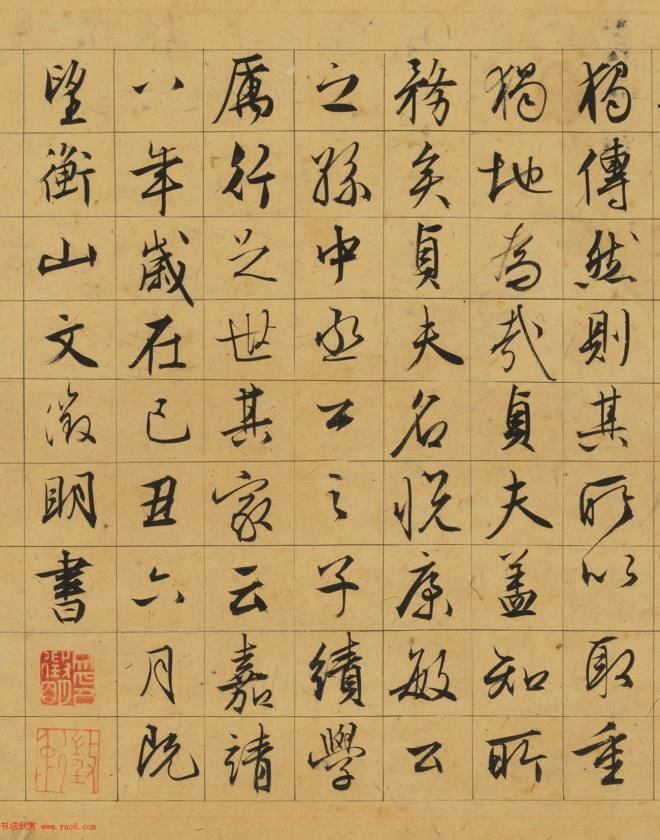 獨傳然則其所以取重
獨地為哉貞夫蓋知所
務矣貞夫名悅康敏公
之孫中丞公之子績學
厲行世其家云嘉靖
八年歲在己丑六月既
望衡山文徵明書
书法欣赏 www.yac8.com